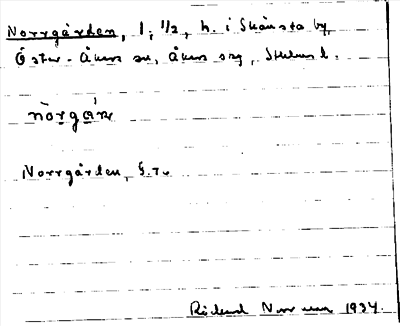 Norrgården, 1, 1/2, h. i Skånsta by,
Öster-Åkers sn, Åkers skg, Sthlms l.
nòrgá̢ɳ
Norrgården, g.
Rickard 1934.